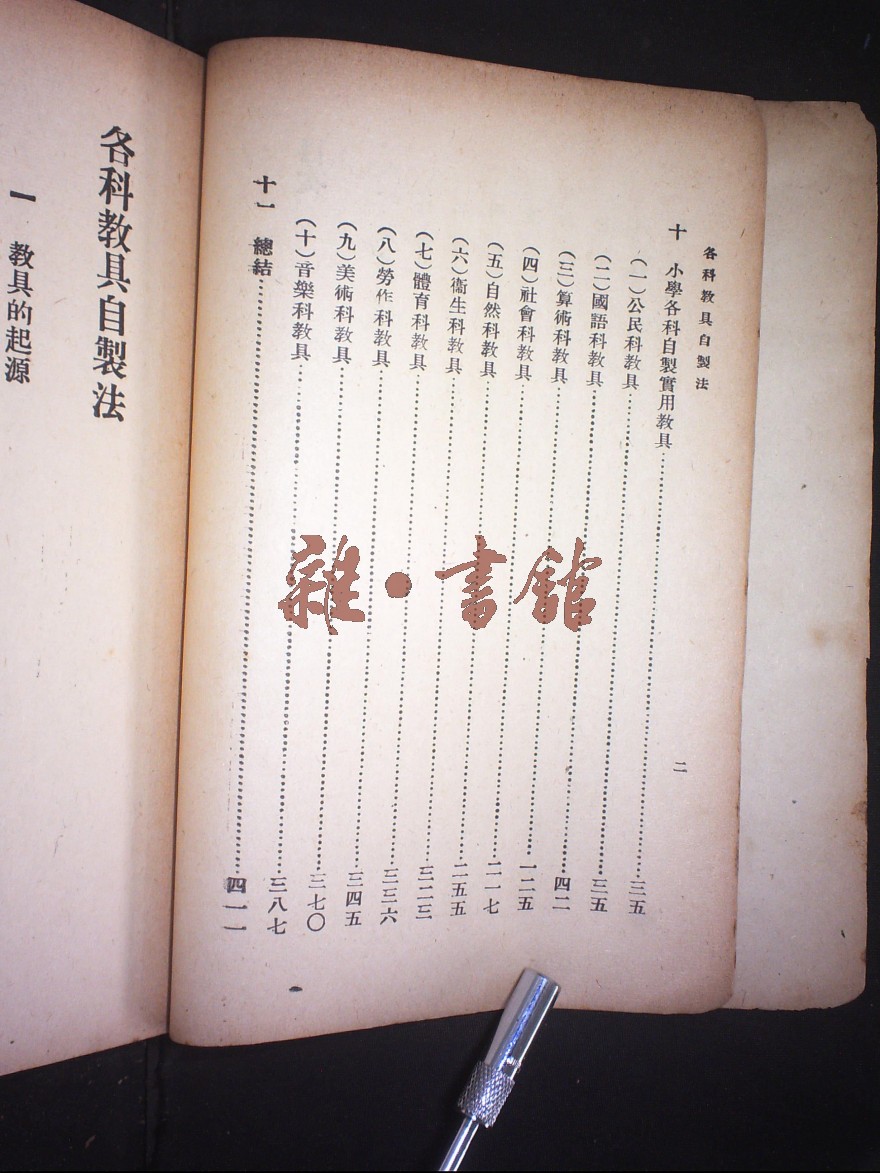 各科教具自製法
二
十 小學各科自製實用教具……三五
(一)公民科教具……三五
(二)國語科教具……四二
(三)算術科教具……一二五
(四)社會科教具……二一七
(五)自然科教具……二五五
(六)衞生科教具……三二三
(七)體育科教具……三三六
(八)勞作科教具……三四五
(九)美術科教具……三七〇
(十)音樂科教具……三八七
十一 總結……四一一
各科教具自製法
一 教具的起源
雜·書館